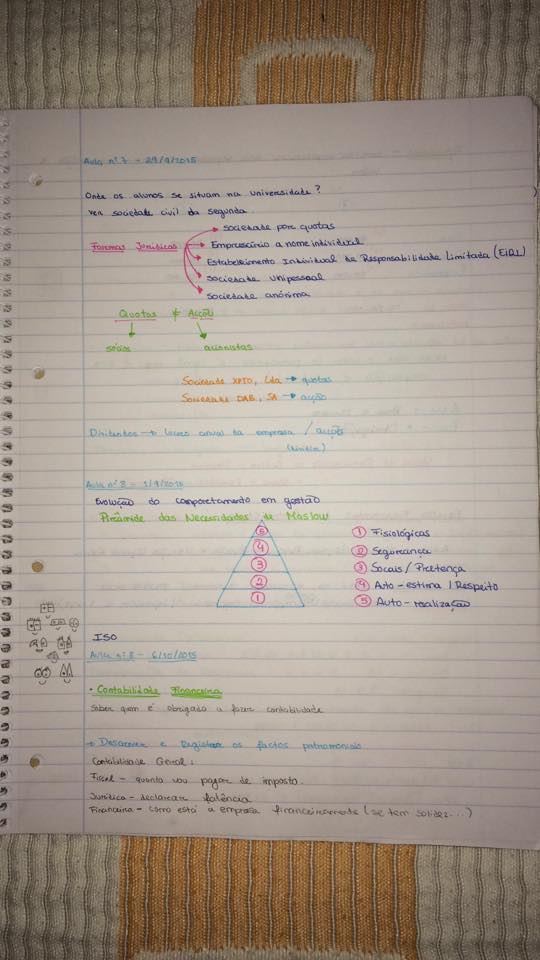 Aula nº 7 - 29/9/2015
Onde os alunos se situam na universidade?
ver sociedade civil da segunda.
Formas Jurídicas
sociedade por quotas
Empressário a nome individual
Estabelecimento Individual de Responsabilidade Limitada (EIRL)
sociedade unipessoal
sociedade anónima
Quotas ≠ Acções
sócios acionistas
Sociedade XPTO, Lda → quotas
Sociedade DAB, SA → acção
Dividentos → lucro anual da empresa / acções
(dividir)
Aula nº 8 - 1/9/2015
Evolução do comportamento em gestão
Pirâmide das Necessidades de Maslow
5
4
3
2
1
1 Fisiológicas
2 Segurança
3 Socais / Pretença
4 Auto-estima / Respeito
5 Auto-realização
ISO
Aula nº 8 - 6/10/2015
• Contabilidade Financeira
Saber quem é obrigado a fazer contabilidade
→ Descrever e Registar os factos patrimoniais
Contabilidade Geral:
Fiscal - quanto vou pagar de imposto.
Jurídica - declarar falência
Financeira - como está a empresa financeiramente (se tem solidez...)